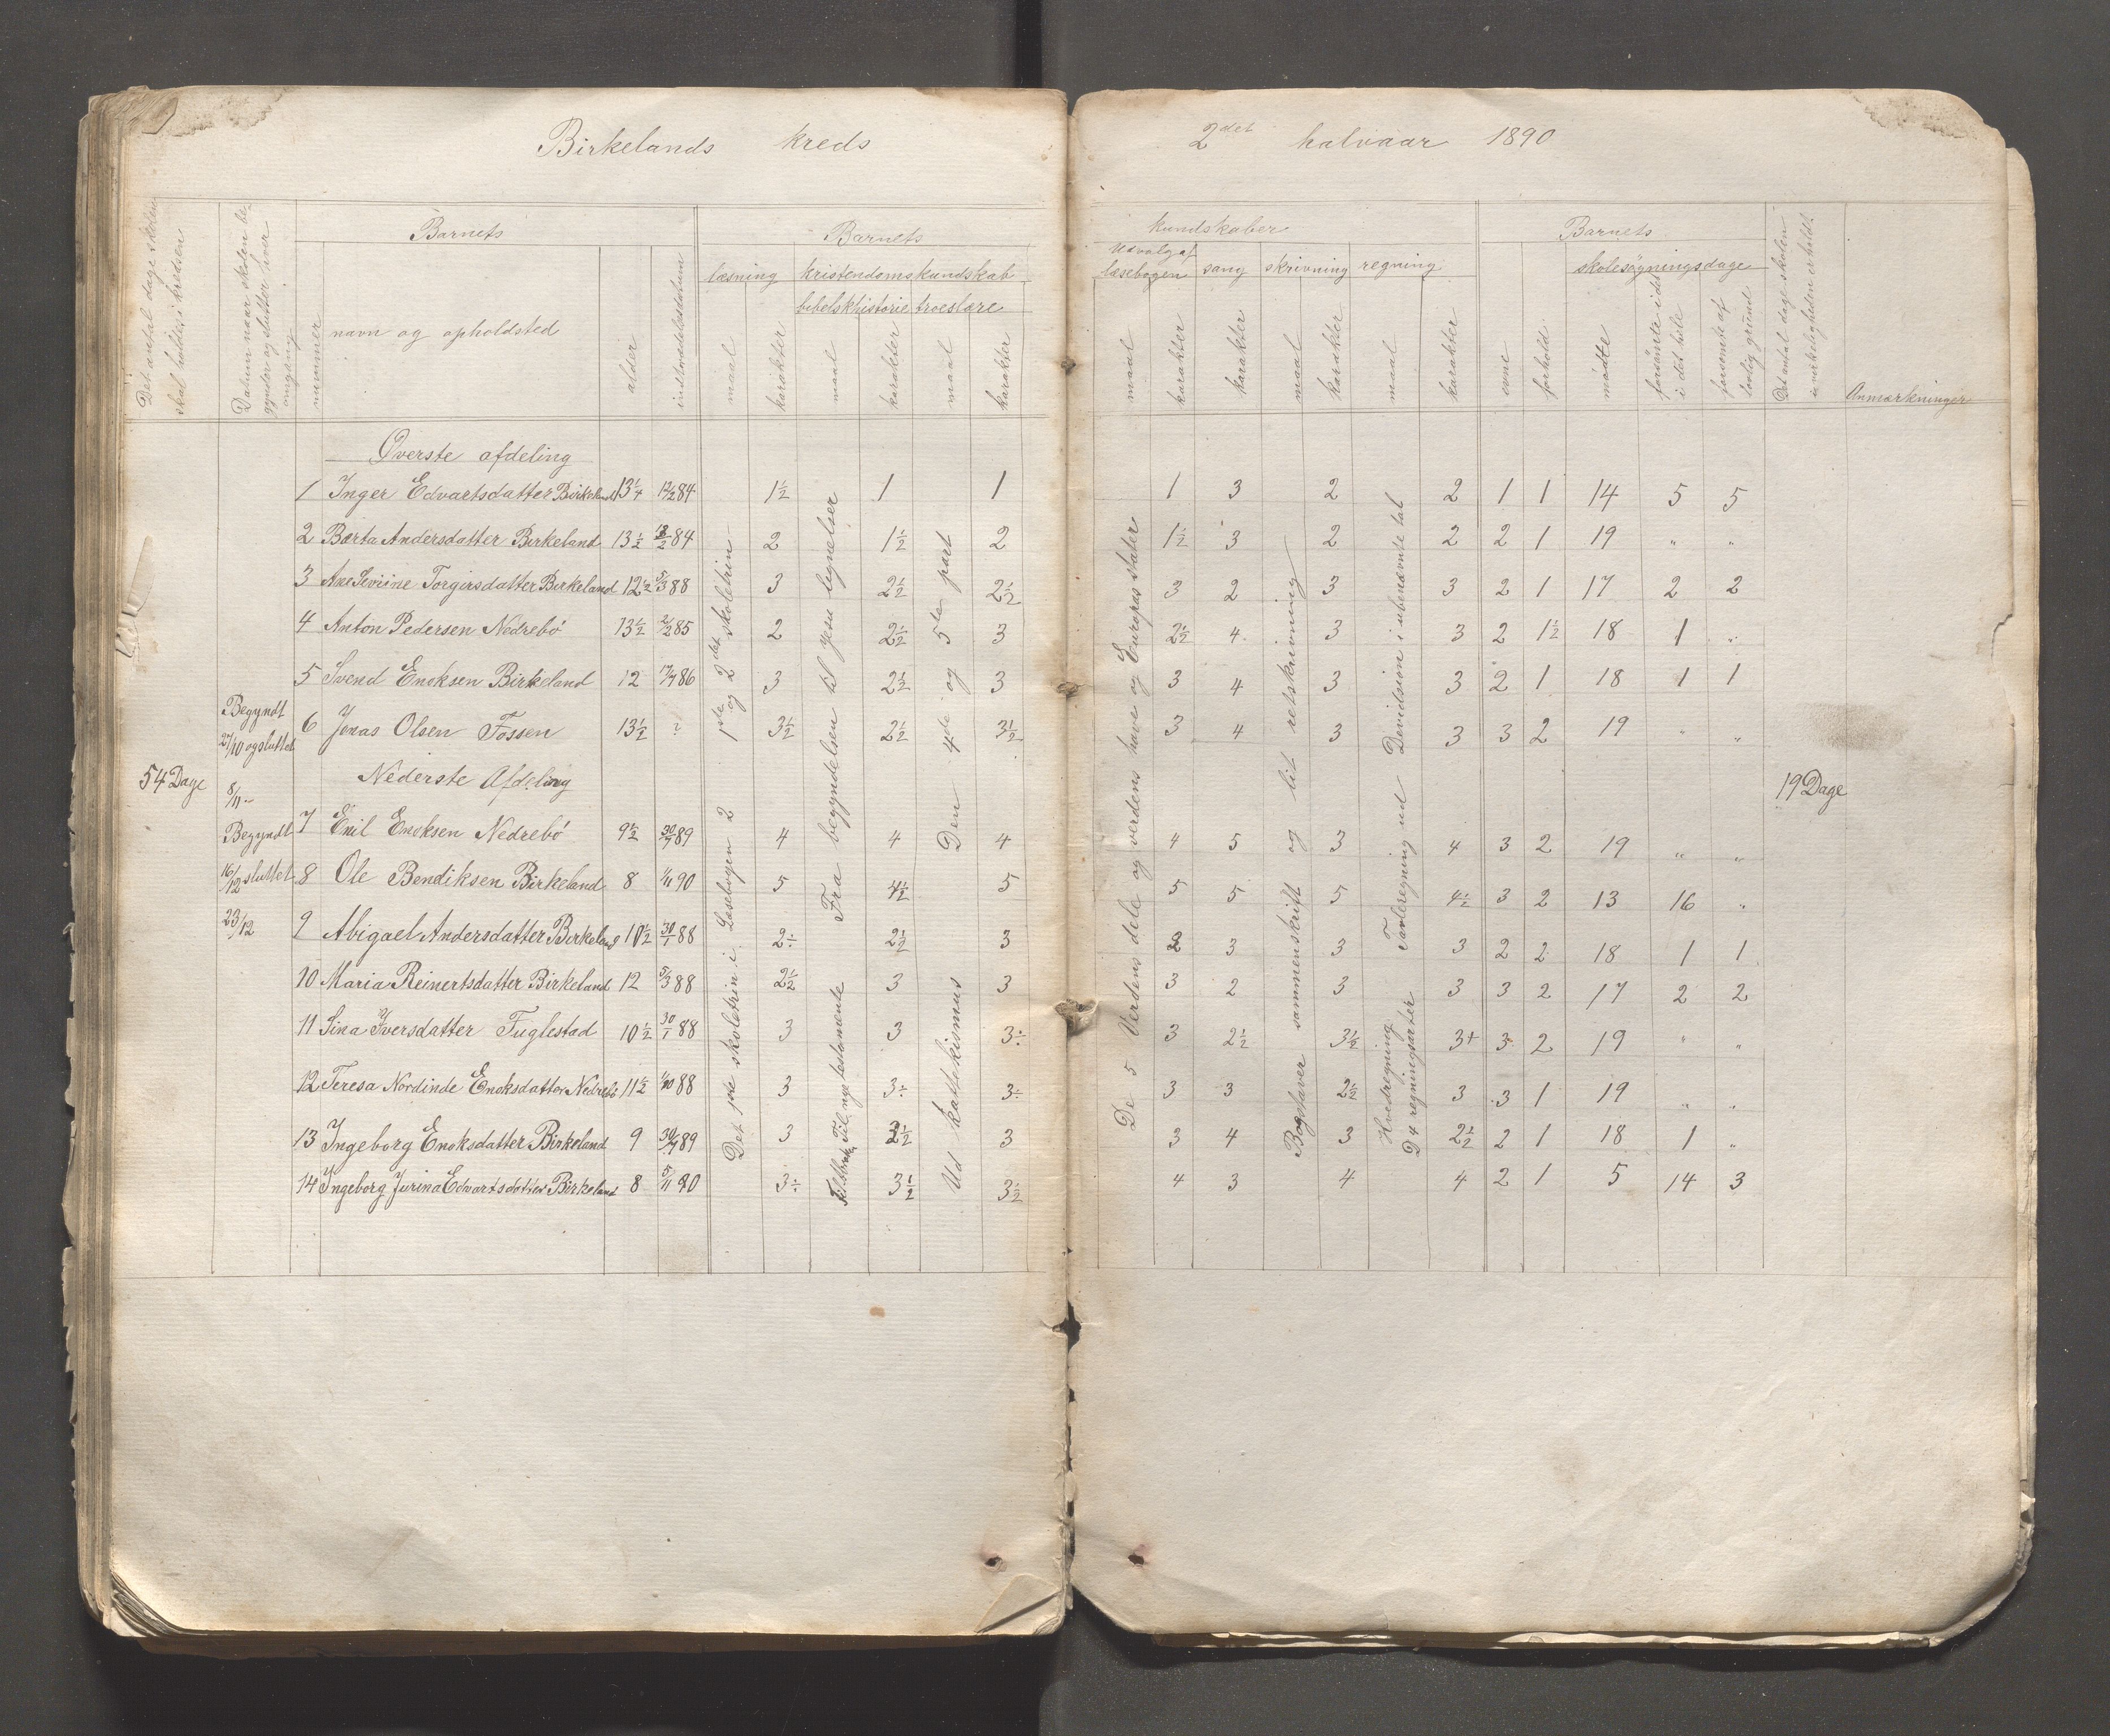 Birkelands kreds
2det halvaar 1890
Det antal dage skolen skal holdes i kredsen
Datum naar skolen begynder og slutter hver omgang
Barnets
nummer
navn og opholdsted
alder
indtrædelsesdatum
Barnets
læsning
maal
karakter
kristendomskundskab
bibelskhistorie
maal
karakter
troeslære
maal
karakter
kundskaber
Udvalg af læsebogen
maal
karakter
sang
karakter
skrivning
maal
karakter
regning
maal
karakter
Barnets
evne
forhold
skolesøgningsdage
mødte
forsømte i det hele
forsømte af lovlig grund
Det antal dage skolen i virkeligheden er holdt
Anmærkninger
Øverste afdeling
1 Inger Edvartsdatter Birkeland 13 1/4 12/2 84 1 1/2 1 1 1 3 2 2 1 1 14 5 5
2 Bærta Andersdatter Birkeland 13 1/2 18/2 84 2 1 1/2 2 1 1/2 3 2 2 2 1 19 " "
3 Ane Seviine Torgirsdatter Birkeland 12 1/2 5/3 88 3 2 1/2 2 1/2 3 2 3 3 2 1 17 2 2
4 Anton Pedersen Nedrebó 13 1/2 2/2 85 2 2 1/2 3 2 1/2 4 3 3 2 1 1/2 18 1 "
5 Svend Enoksen Birkeland 12 17/7 86 3 2 1/2 3 3 4 3 3 2 1 18 1 1
6 Jonas Olsen Fossen 13 1/2 ? 3 1/2 2 1/2 3 1/2 3 4 3 3 3 2 19 " "
Nederste Afdeling
7 Emil Enoksen Nedrebó 9 1/2 30/7 89 4 4 4 4 5 3 4 3 2 19 " "
8 Ole Bendiksen Birkeland 8 1/11 90 5 4 1/2 5 5 5 5 4 1/2 3 2 13 16 "
9 Abigael Andersdatter Birkeland 10 1/2 30/1 88 2÷ 2 1/2 3 2 3 3 3 2 2 18 1 1
10 Maria Reinertsdatter Birkeland 12 5/3 88 2 1/2 3 3 3 2 3 3 3 2 17 2 2
11 Sina Iversdatter Fuglestad 10 1/2 30/1 88 3 3 3÷ 3 2 1/2 3 1/2 3+ 3 2 19 " "
12 Teresa Nordinde Enoksdatter Nedrebó 11 1/2 1/10 88 3 3÷ 3÷ 3 3 2 1/2 3 3 1 19 " "
13 Ingeborg Enoksdatter Birkeland 9 30/7 89 3 2 1/2 3 3 4 3 2 1/2 2 1 18 1 "
14 Ingeborg Jurina Edvartsdatter Birkeland 8 5/11 90 3÷ 3 1/2 3 1/2 4 3 4 4 2 1 5 14 3
54 Dage
Begyndt
27/10 og sluttet
8/11 "
Begyndt
16/12 sluttet
23/12
19 Dage
1ste og 2det skoletrin
Det 1ste skoletrin i Læsebogen 2
Fra begyndelsen til Jesu lignelser
Til nye testamente
4de og 5te part
Den
Ud kattekismus
De 5 Verdens dele og verdens have og Europas stater
og lit retskrivning
Bogstaver sammenskrift
Tavleregning ud Devidsion i ubenævnte tal
Hvedregning
D 4 regningsarter